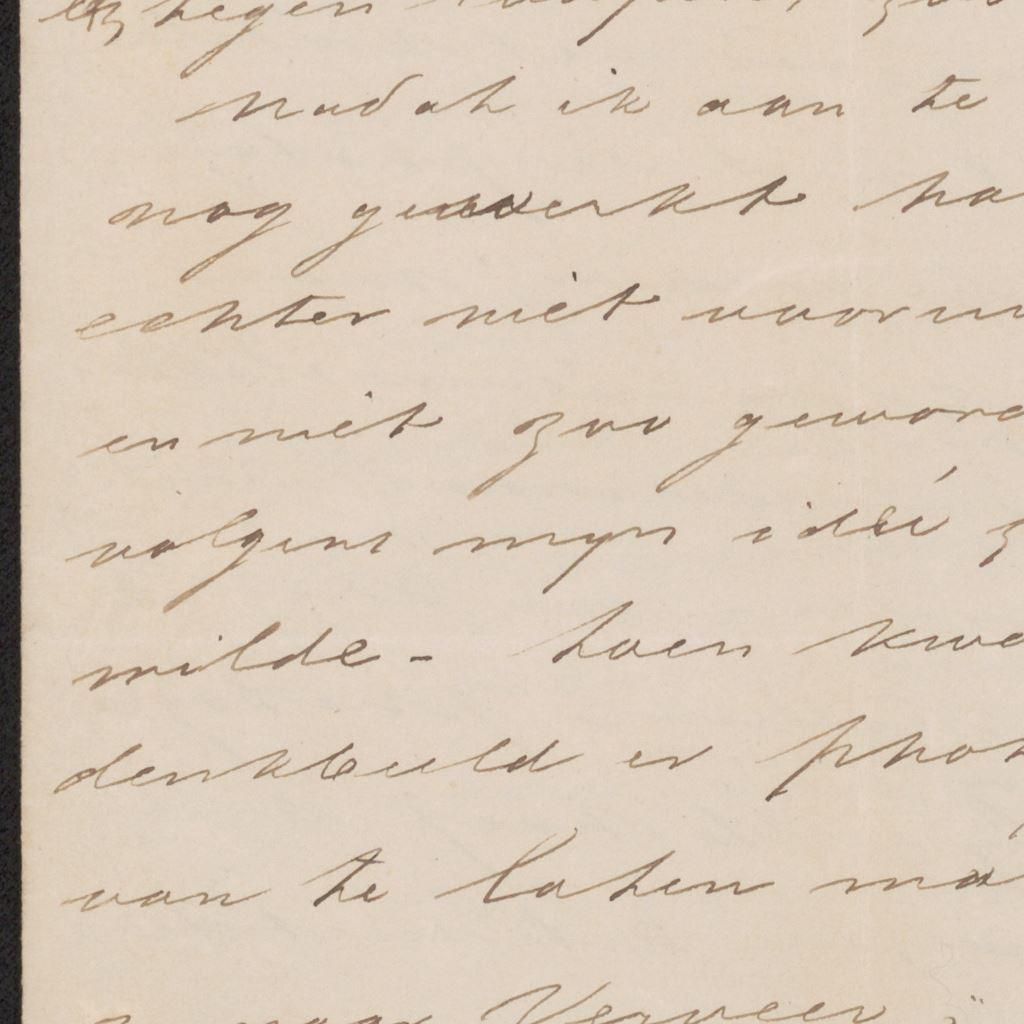 tegen
nadat ik aan te
nog gewerkt ha
echter niet voorui
en niet zoo geword
volgens mijn ideé z
wilde - toen kwa
denkbeeld er phot
van te laten ma
naar Verveer